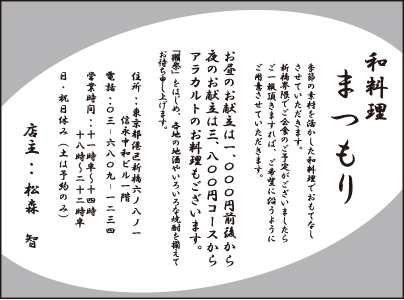 和料理
まつもり
季節の素材を活かした和料理でおもてなし
させていただきます。
新橋界隈でご会食のご予定がございましたら
ご一報頂きますれば、ご希望に沿うように
ご用意させていただきます。
お昼のお献立は一、〇〇〇円前後から
夜のお献立は三、八〇〇円コースから
アラカルトのお料理もございます。
「獺祭」をはじめ、各地の地酒やいろいろな焼酎を揃えて
お待ち申し上げます。
住所：東京都港区新橋六ノ八ノ一
信永中和ビル一階
電話：〇三―六八〇九―一二三四
営業時間：十一時半〜十四時
十八時〜二十二時半
日・祝日休み（土は予約のみ）
店主：松森　智